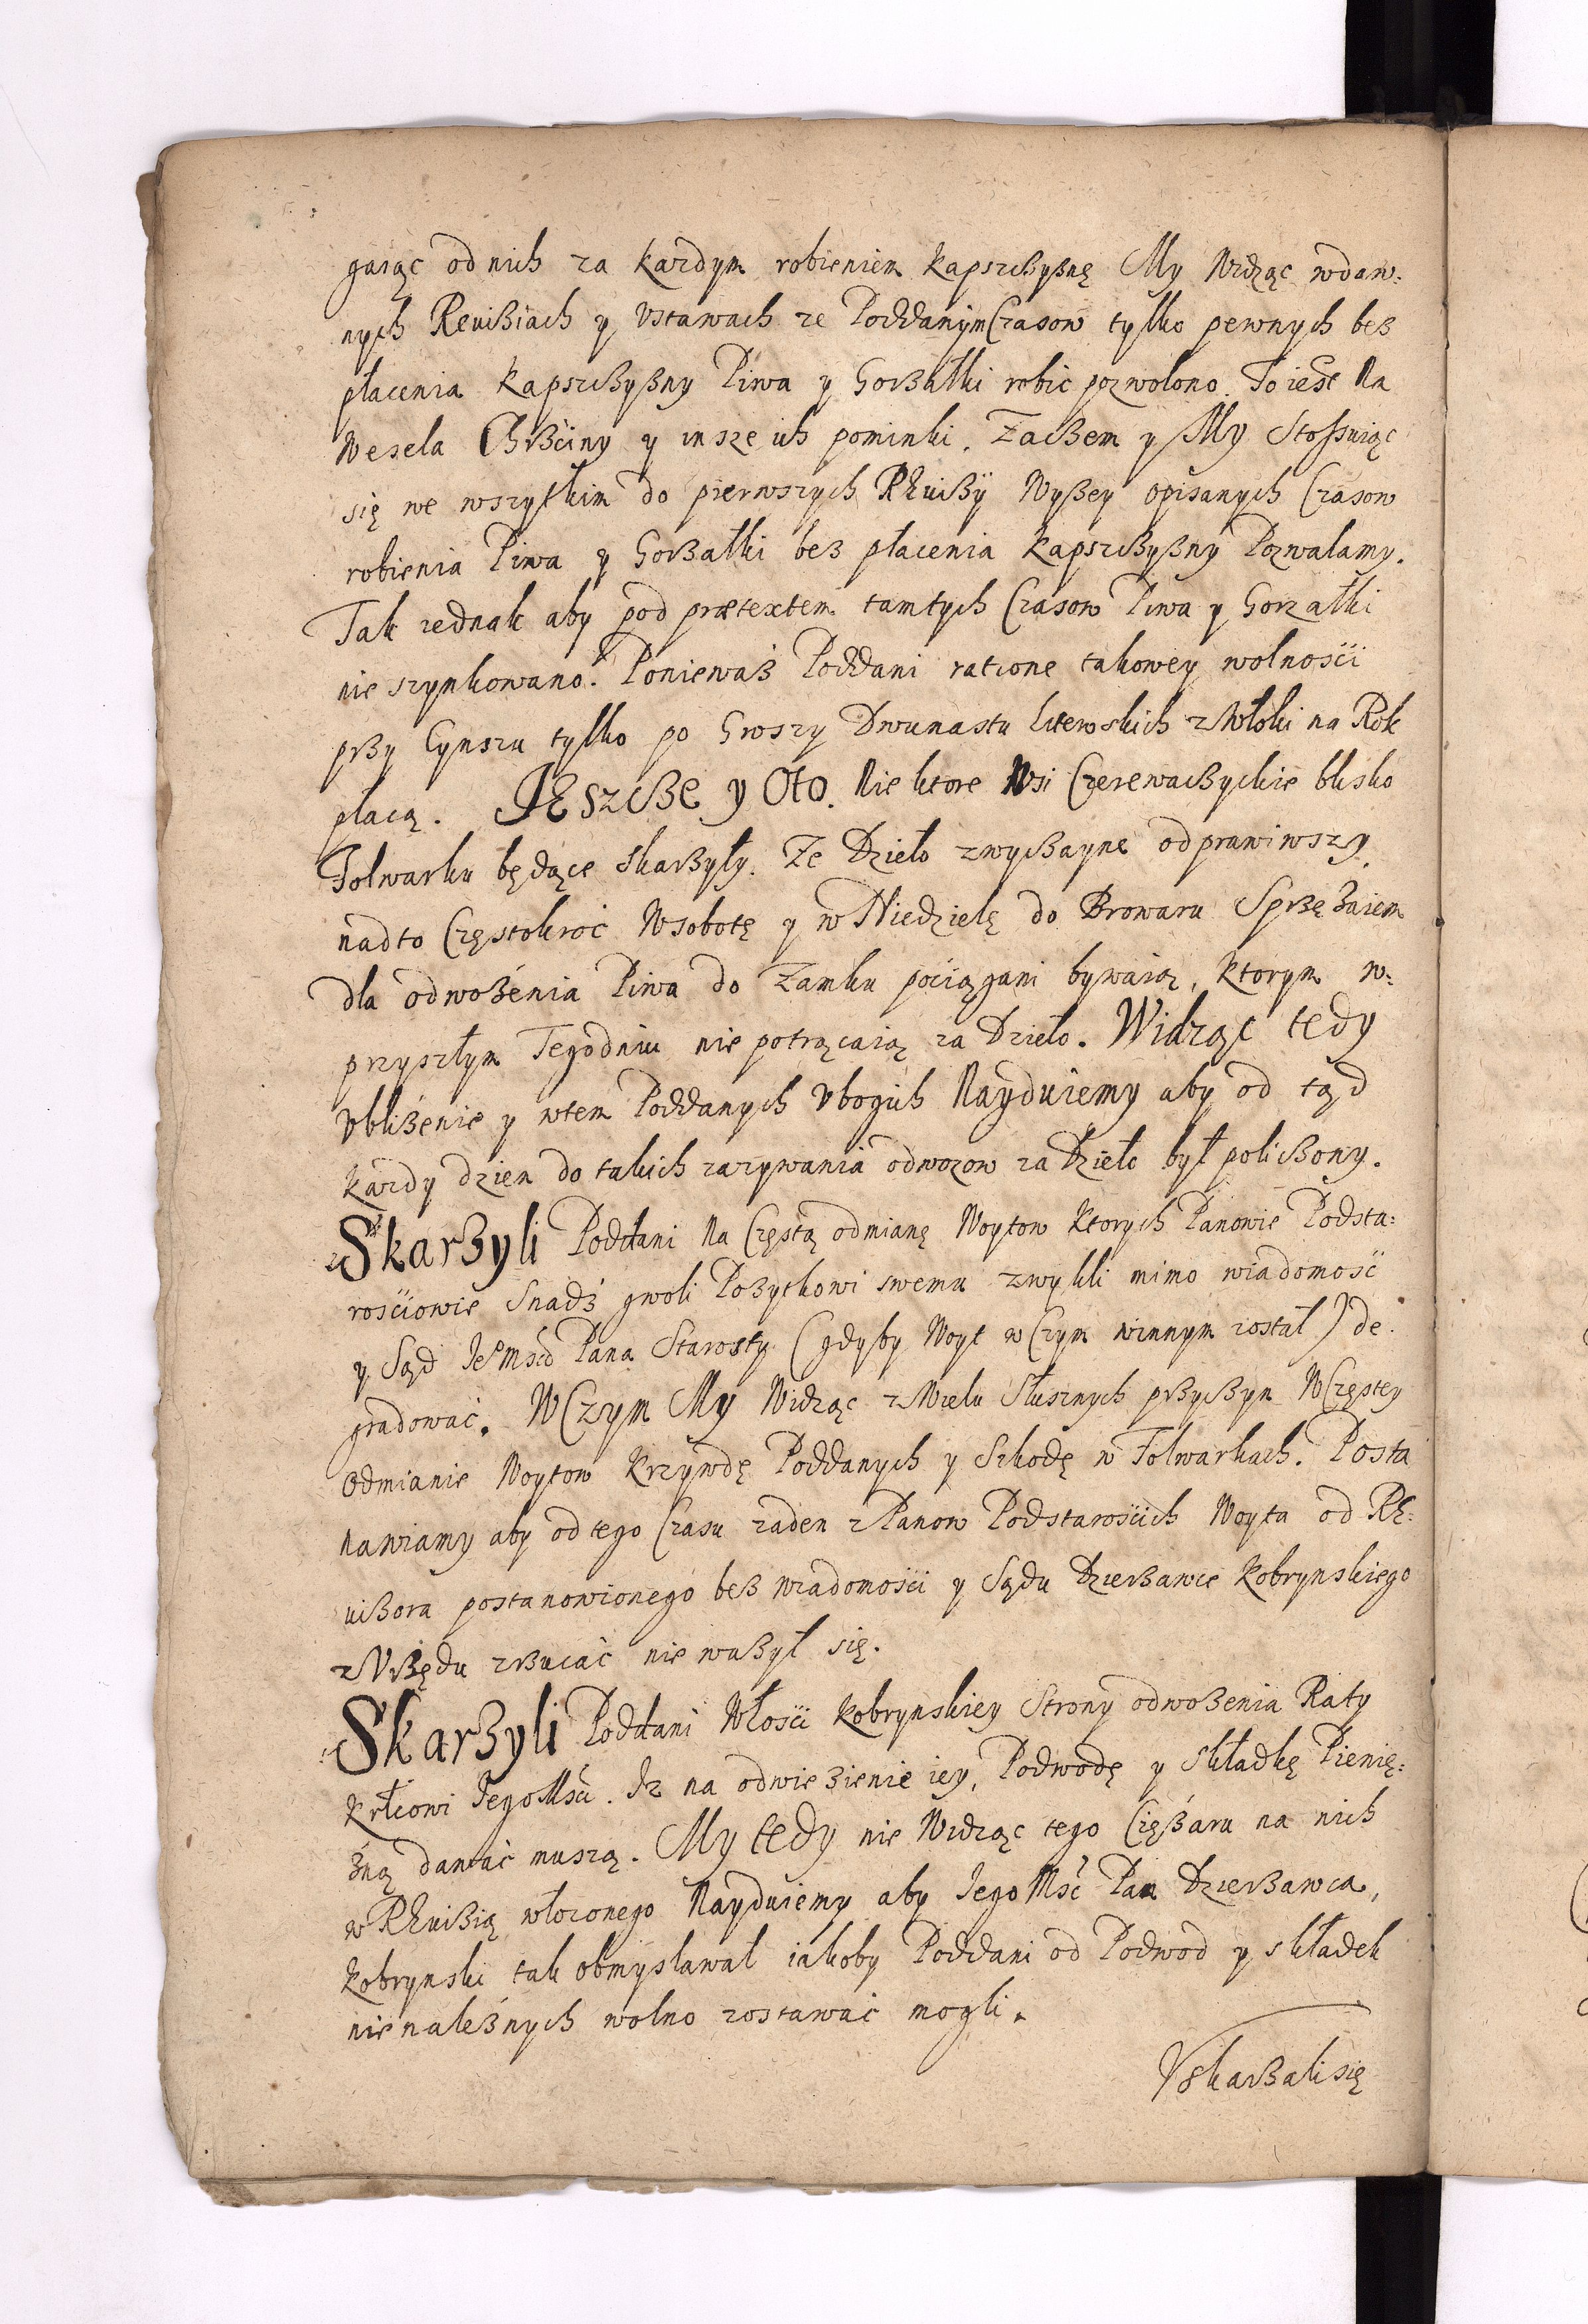 gaiąc od nich za każdym robieniem kapszczyznę My widząc wdaw:
nych Reuiziach y Vstawach ze Poddanym Czasow tylko pewnych bez
płacenia kapszczyzny Piwa y Gorzałki robic pozwolono. To iest Na
Wesela Chrzciny y insze ich pominki. Zaczem y My Stosuiąc
się we wszytkim do pierwszych REuizÿ Wyzey opisanych Czasow
robienia Piwa y Gorzałki bez płacenia kapszczyzny Pozwalamy.
Tak iednak aby pod prætextem tamtych Czasow Piwa y Gorzałki
nie szynkowano. Poniewaz Poddani ratione takowey wolności
przy Cynszu tylko po Groszy Dwunastu Litewskich z Włoki na Rok
płacą. JEszcze y Oto. Nie ktore Wsi Czerewaczyckie blisko
Folwarku będące skarzyły. Ze Dzieło zwyczayne odprawiwszy
nadto Częstokroć Wsobotę y w Niedzielę do Browaru Sprzężaiem
dla odwożenia Piwa do Zamku pociągani bywaią, ktorym w:
przyszłym Tegodniu nie potrącaią za Dzieło. Widząc tedy
Vbliżenie y wtem Poddanych Vbogich Nayduiemy aby od tąd
każdy dzien do takich zazywania odwozow za Dzieło był policzony.
Skarzyli Poddani Na Częstą odmianę Woytow ktorych Panowie Podsta:
rościowie Snadź gwoli Pożytkowi swemu zwykli mimo wiadomość
y Sąd Jeº Mści Pana Starosty (gdyby Woyt w Czym winnym został) de
gradować. WCzym My Widząc z Wielu Słusznych przyczyn WCzęstey
Odmianie Woytow krzywdę Poddanych y Szkodę w Folwarkach. Posta
nawiamy aby od tego Czasu żaden z Panow Podstarościch Woyta od RE:
uizora postanowionego bez wiadomości y Sądu Dzierzawcę kobrynskiego
z Vrzędu zrzucać nie wazył się.
Skarzyli Poddani Włości kobrynskiey Strony odwożenia Raty
krłowi Jego Mści. Iz na odwiezienie iey, Podwodę y Składkę Pienię:
żną dawać muszą. My tedy nie Widząc tego Ciężaru na nich
w REuizią włożonego Nayduiemy aby Jego Mść Pan Dzierzawca,
kobrynski tak obmyslawał iakoby Poddani od Podwod y składek
nienależnych wolno zostawać mogli.
Vskarzali się